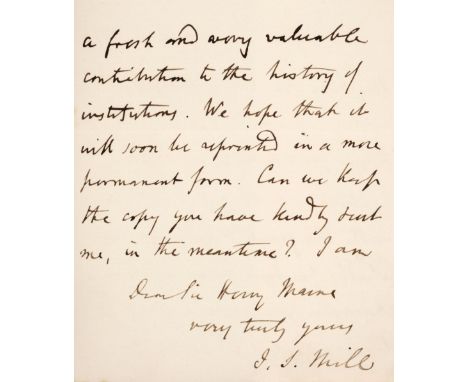 a fresh and very valuable
contribution to the history of
institutions. We hope that it
will soon be reprinted in a more
permanent form. Can we keep
the copy you have kindly sent
me, in the meantime? I am
Dear Sir Henry Maine
very truly yours
J. S. Mill